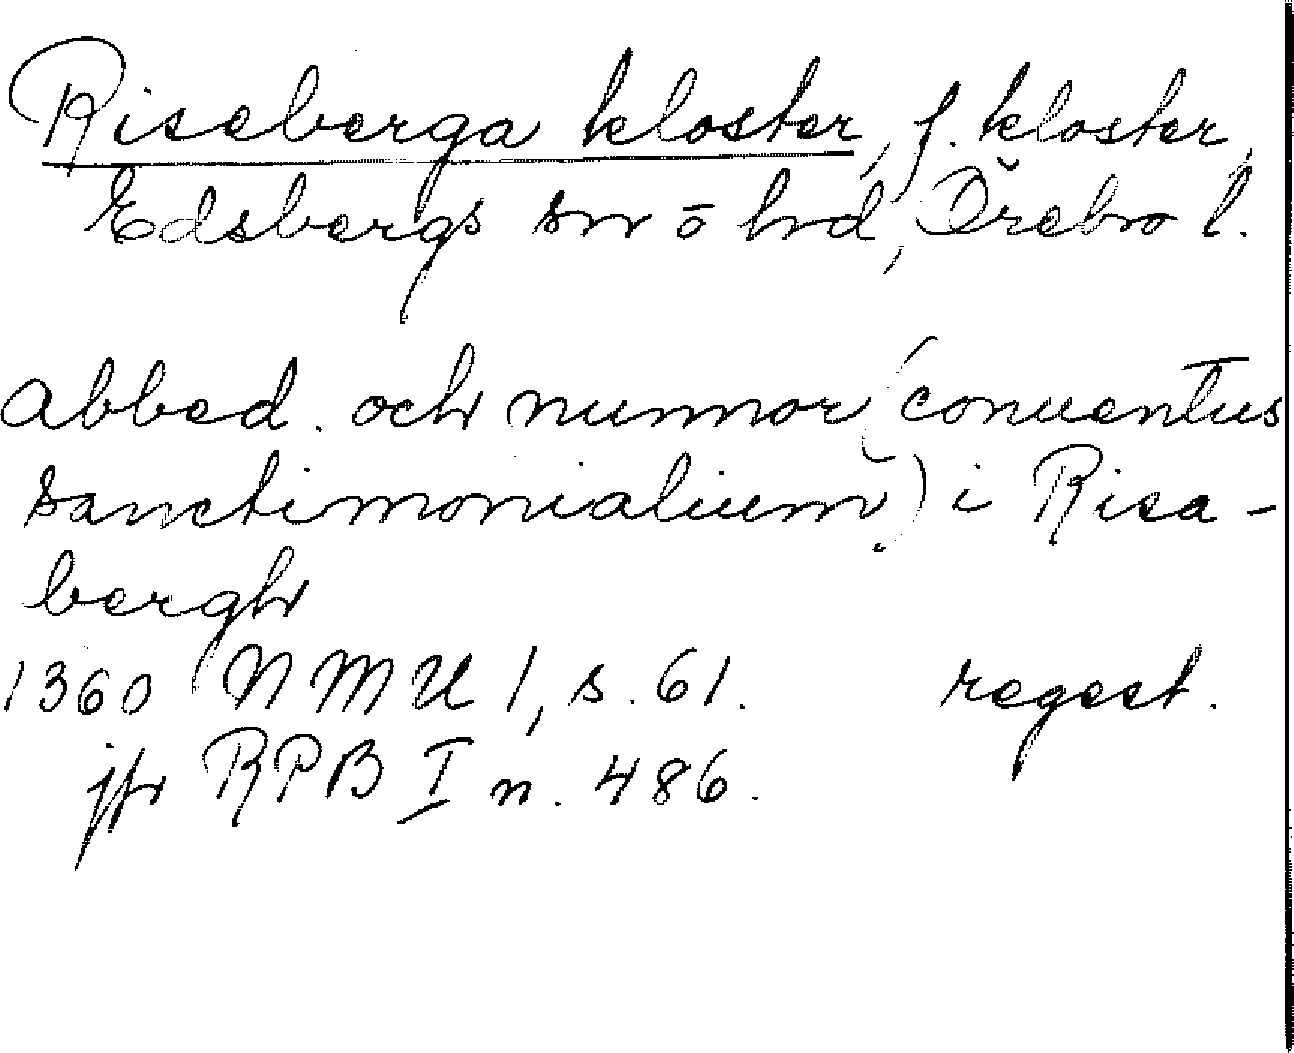 Riseberga kloster, f. kloster,
Edsbergs sn o hd, Örebro l.
abbed. och nunnor (conuentus
sanctimonialium) i Risa-
bergh
1360 NMU 1, s. 61. regest.
jfr RPB I n. 486.